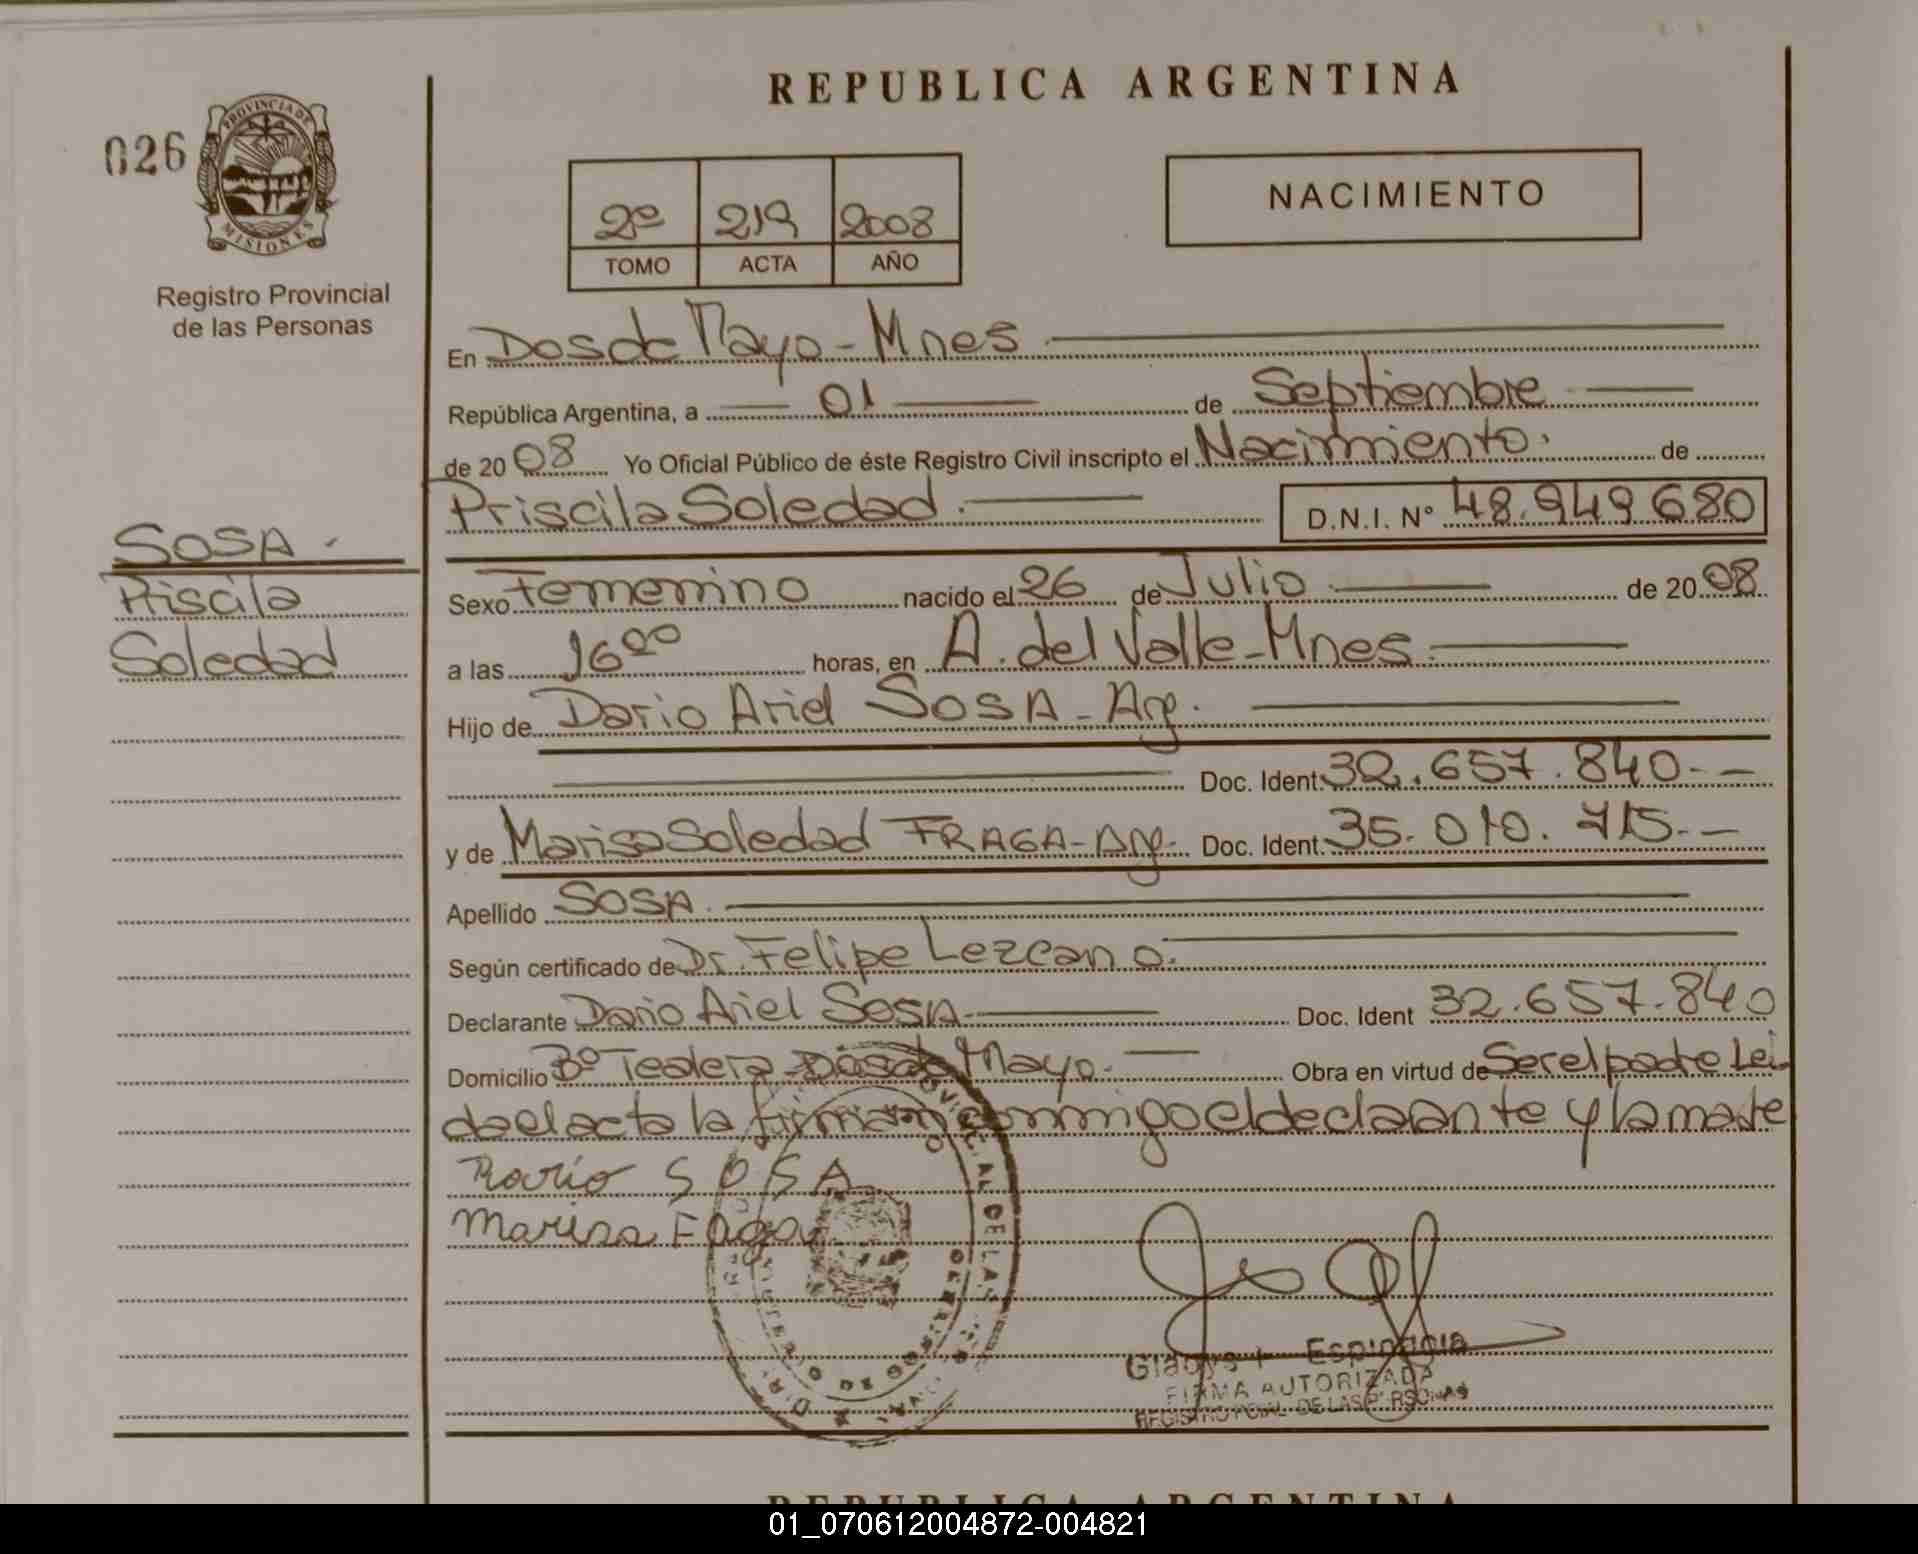 REPUBLICA ARGENTINA
026
PROVINCIA DE MISIONES
Registro Provincial
de las Personas
2º 219 2008
TOMO ACTA AÑO
NACIMIENTO
En Dos de Mayo - Mnes
República Argentina, a 01 de Septiembre
de 2008 Yo Oficial Público de éste Registro Civil inscripto el Nacimiento. de
Priscila Soledad. D.N.I. Nº 48.949680
SOSA -
Priscila
Soledad
Sexo Femenino nacido el 26 de Julio de 2008
a las 16⁰⁰ horas, en A. del Valle - Mnes.
Hijo de Dario Ariel SOSA - Arg.
Doc. Ident. 32.657.840.-
y de Marisa Soledad FRAGA - Arg. Doc. Ident. 35.010.715.-
Apellido SOSA.
Según certificado de Dr. Felipe Lezcano.
Declarante Dario Ariel SOSA Doc. Ident 32.657.840
Domicilio Bº Tealera Dos de Mayo. Obra en virtud de Ser el padre Lei
da el acta la firman conmigo el declaante y la madre
Darío SOSA
Marisa Faga
Gladys Espindola
FIRMA AUTORIZADA
REGISTRO PCIAL. DE LAS PERSONAS
REPUBLICA ARGENTINA
01_070612004872-004821